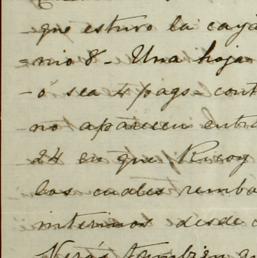 que estuvo la caja
nio 8 - Una hoja
- ó sea 4 pags. cont
no aparecen entre
24 en que Ricoy
los cuales remba
interinos desde
Verás también qu